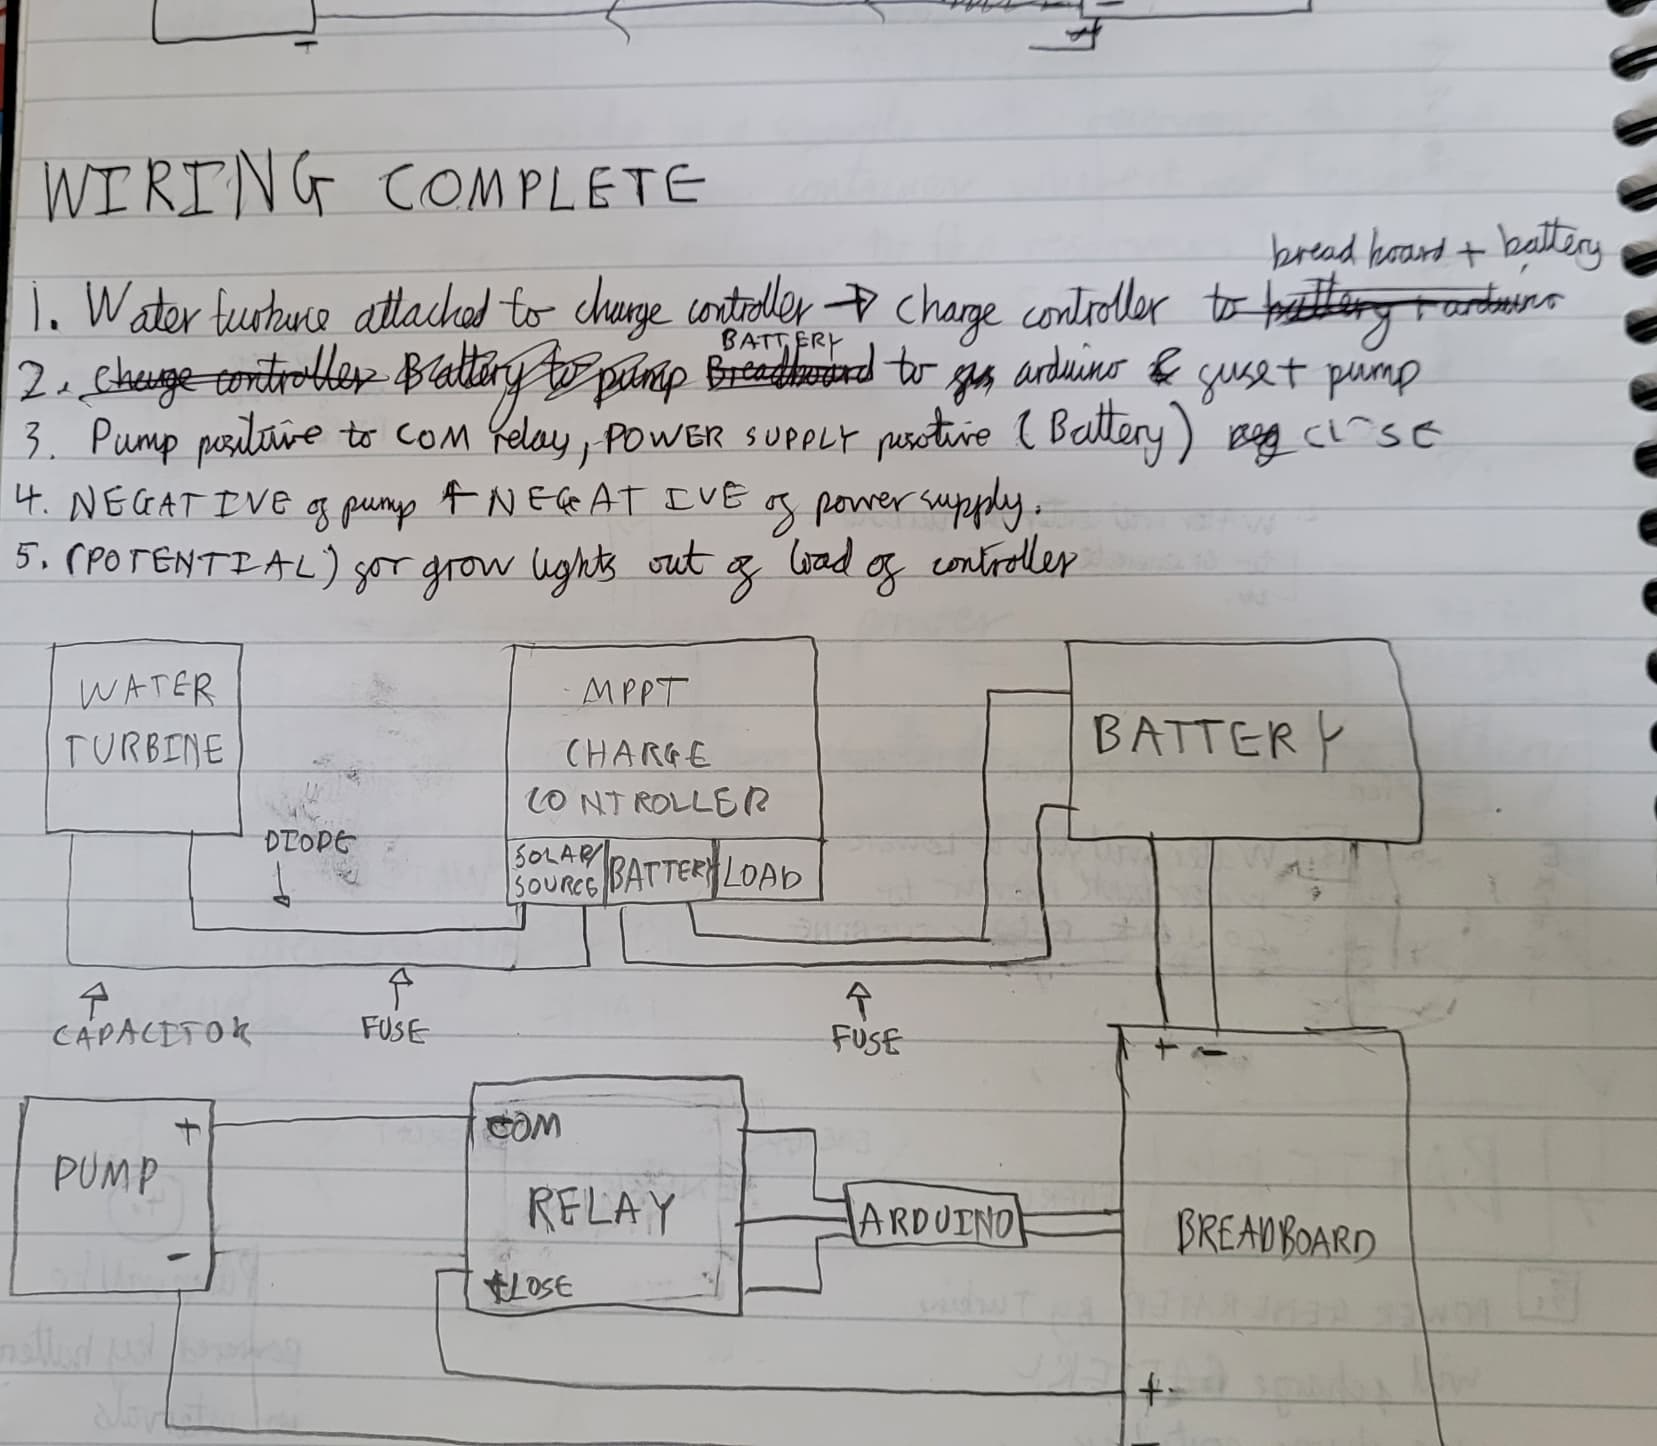 WIRING COMPLETE
bread board + battery
1. Water turbine attached to charge controller → charge controller to battery + arduino
BATTERY
2. charge controller Battery to pump Breadboard to arduino & guset pump
3. Pump positive to COM relay, POWER SUPPLY positive (Battery) CLOSE
4. NEGATIVE of pump + NEGATIVE of power supply.
5. (POTENTIAL) for grow lights out of load of controller
WATER
TURBINE
MPPT
CHARGE
CONTROLLER
BATTERY
DIODE
SOLAR/
SOURCE
BATTERY
LOAD
CAPACITOR
FUSE
FUSE
+ -
PUMP
+
-
COM
RELAY
CLOSE
ARDUINO
BREADBOARD
+
-